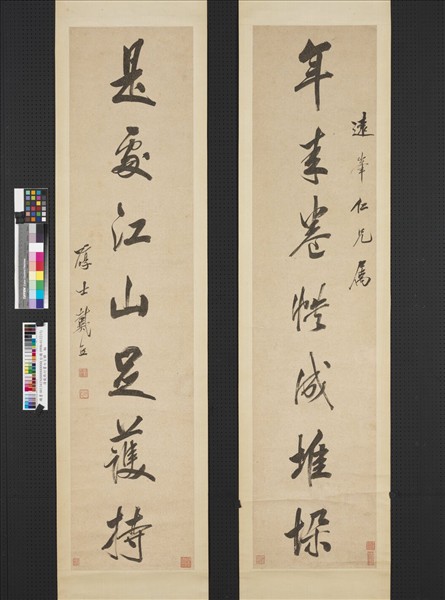 遠峯仁兄属
年来卷成堆垛
是處江山足護持
醇士戴熙